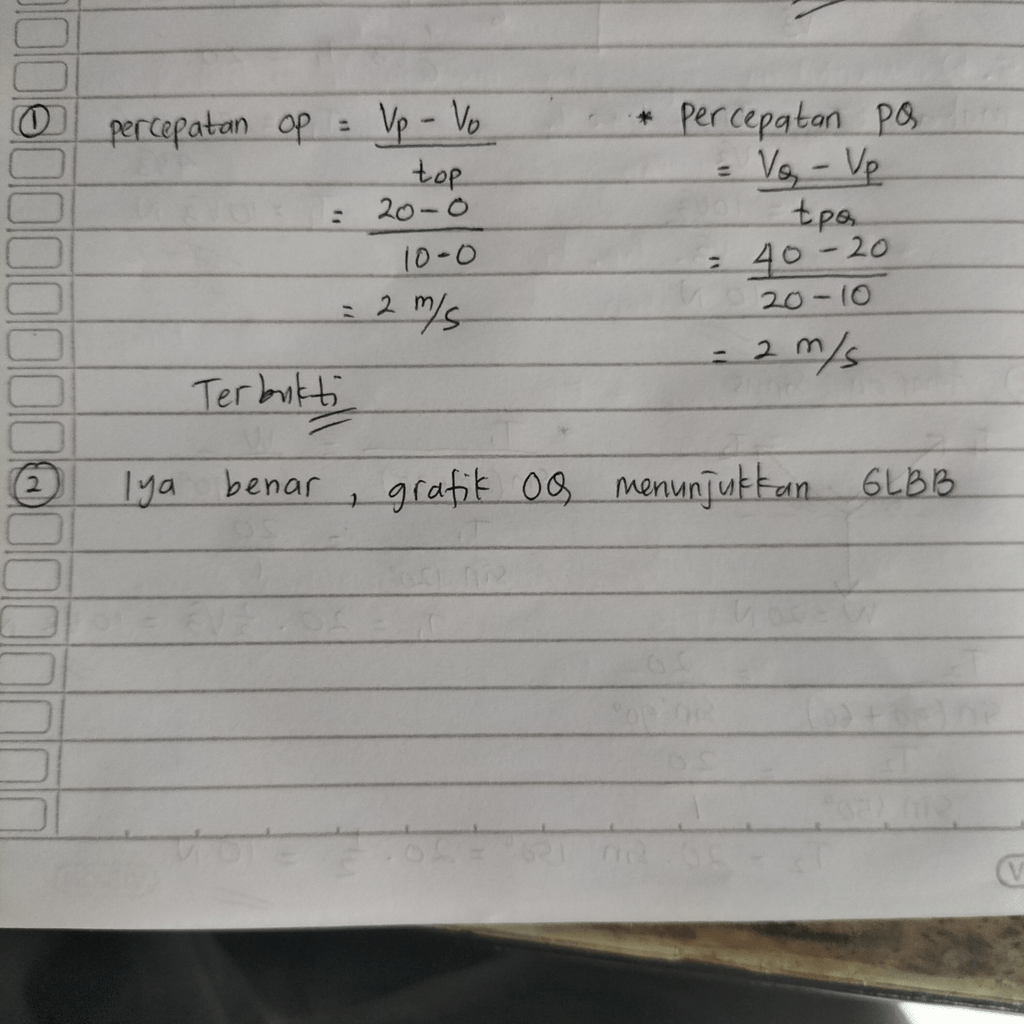 ① percepatan op = Vp - Vo
top
= 20-0
10-0
= 2 m/s
* percepatan PQ
= VQ - Vp
tpQ
= 40 - 20
20-10
= 2 m/s
Terbukti
② Iya benar, grafik OQ menunjukkan GLBB